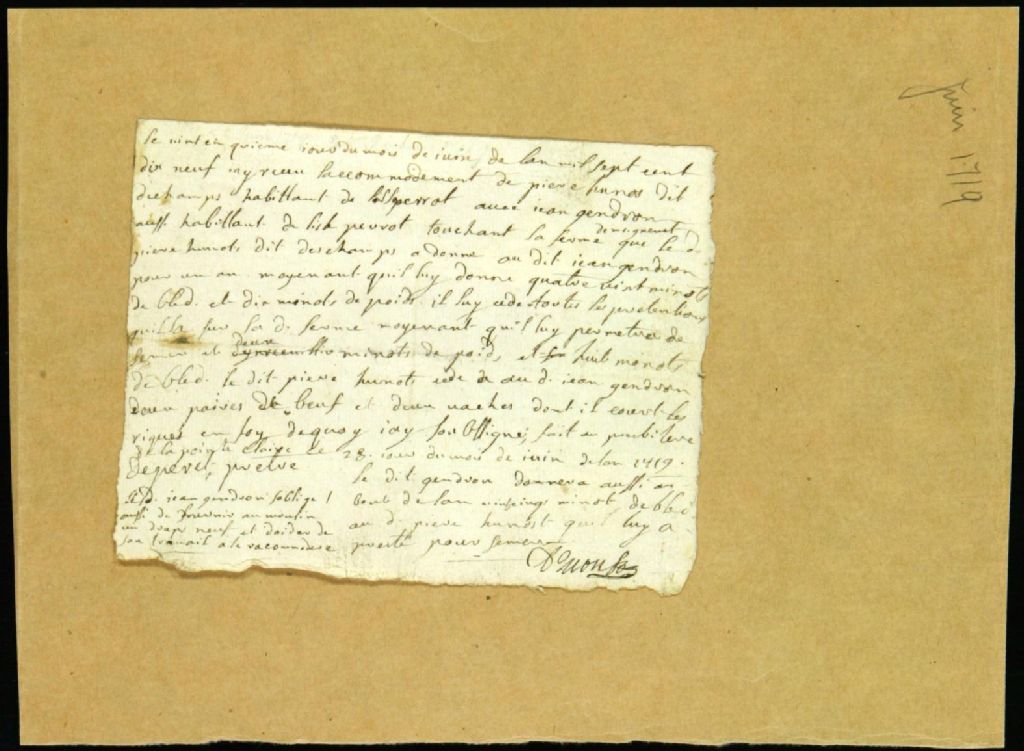 le vint ein quieme iour du mois de iuin de lan mil sept cent
dix neuf iay receu laccommodement de piere hunos dit
dechamps habittant de perrot avec iean gendron
aussi habittant de perrot touchant la ferme que le d.
denseigneuri
piere hunots dit deschamps a donne au dit iean gendron
pour un an moyenant quil luy donne quatre vint minots
de bled. et dix minots de poids. il luy cede toutes les pretentions
quil a sur la d. ferme moyenant quil luy permettra de
semer et deux minots de poids, et huit monots
de bled. le dit piere hunots cede au d. iean gendron
deux paires de beuf et deux vaches dont il court les
riques en foy dequoy iay soubssigné, fait en
de la pointe claire ce 28. iour du mois de iuin de lan 1719.
Lepere, pretre
le dit gendron donnera aussi au
bout de lan minot de blé
au d. piere hunost quil luy a
preste pour semer
le d. iean gendron soblige
aussi de fournir au moulin
un drap neuf et daider de
son travail a le racommodere
juin 1719